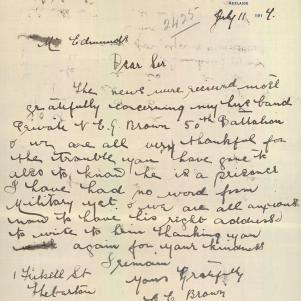 ADELAIDE
2425
July 11 191
Mr Edmunds
Dear Sir
The news were received most
gratefully concerning my husband
Private N E G Brown 50th Battalion
& we are all very thankful for
the trouble you have gone to
also to know he is a prisoner
I have had no word from
Military yet, & we are all anxious
now to have his right address
to write to him thanking you
again for your kindness
I remain
Yours Gratefully
Brown
1 Tickell St
Thebarton